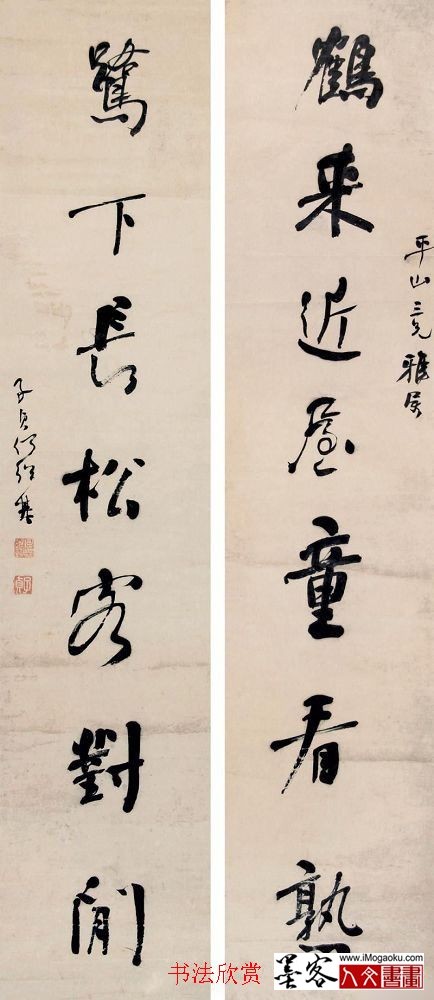 平山三兄雅屬
鶴来近屋童看熟
鷺下長松客對閒
子貞何紹基
书法欣赏
墨客
www.iMogaoku.com
人文書畫